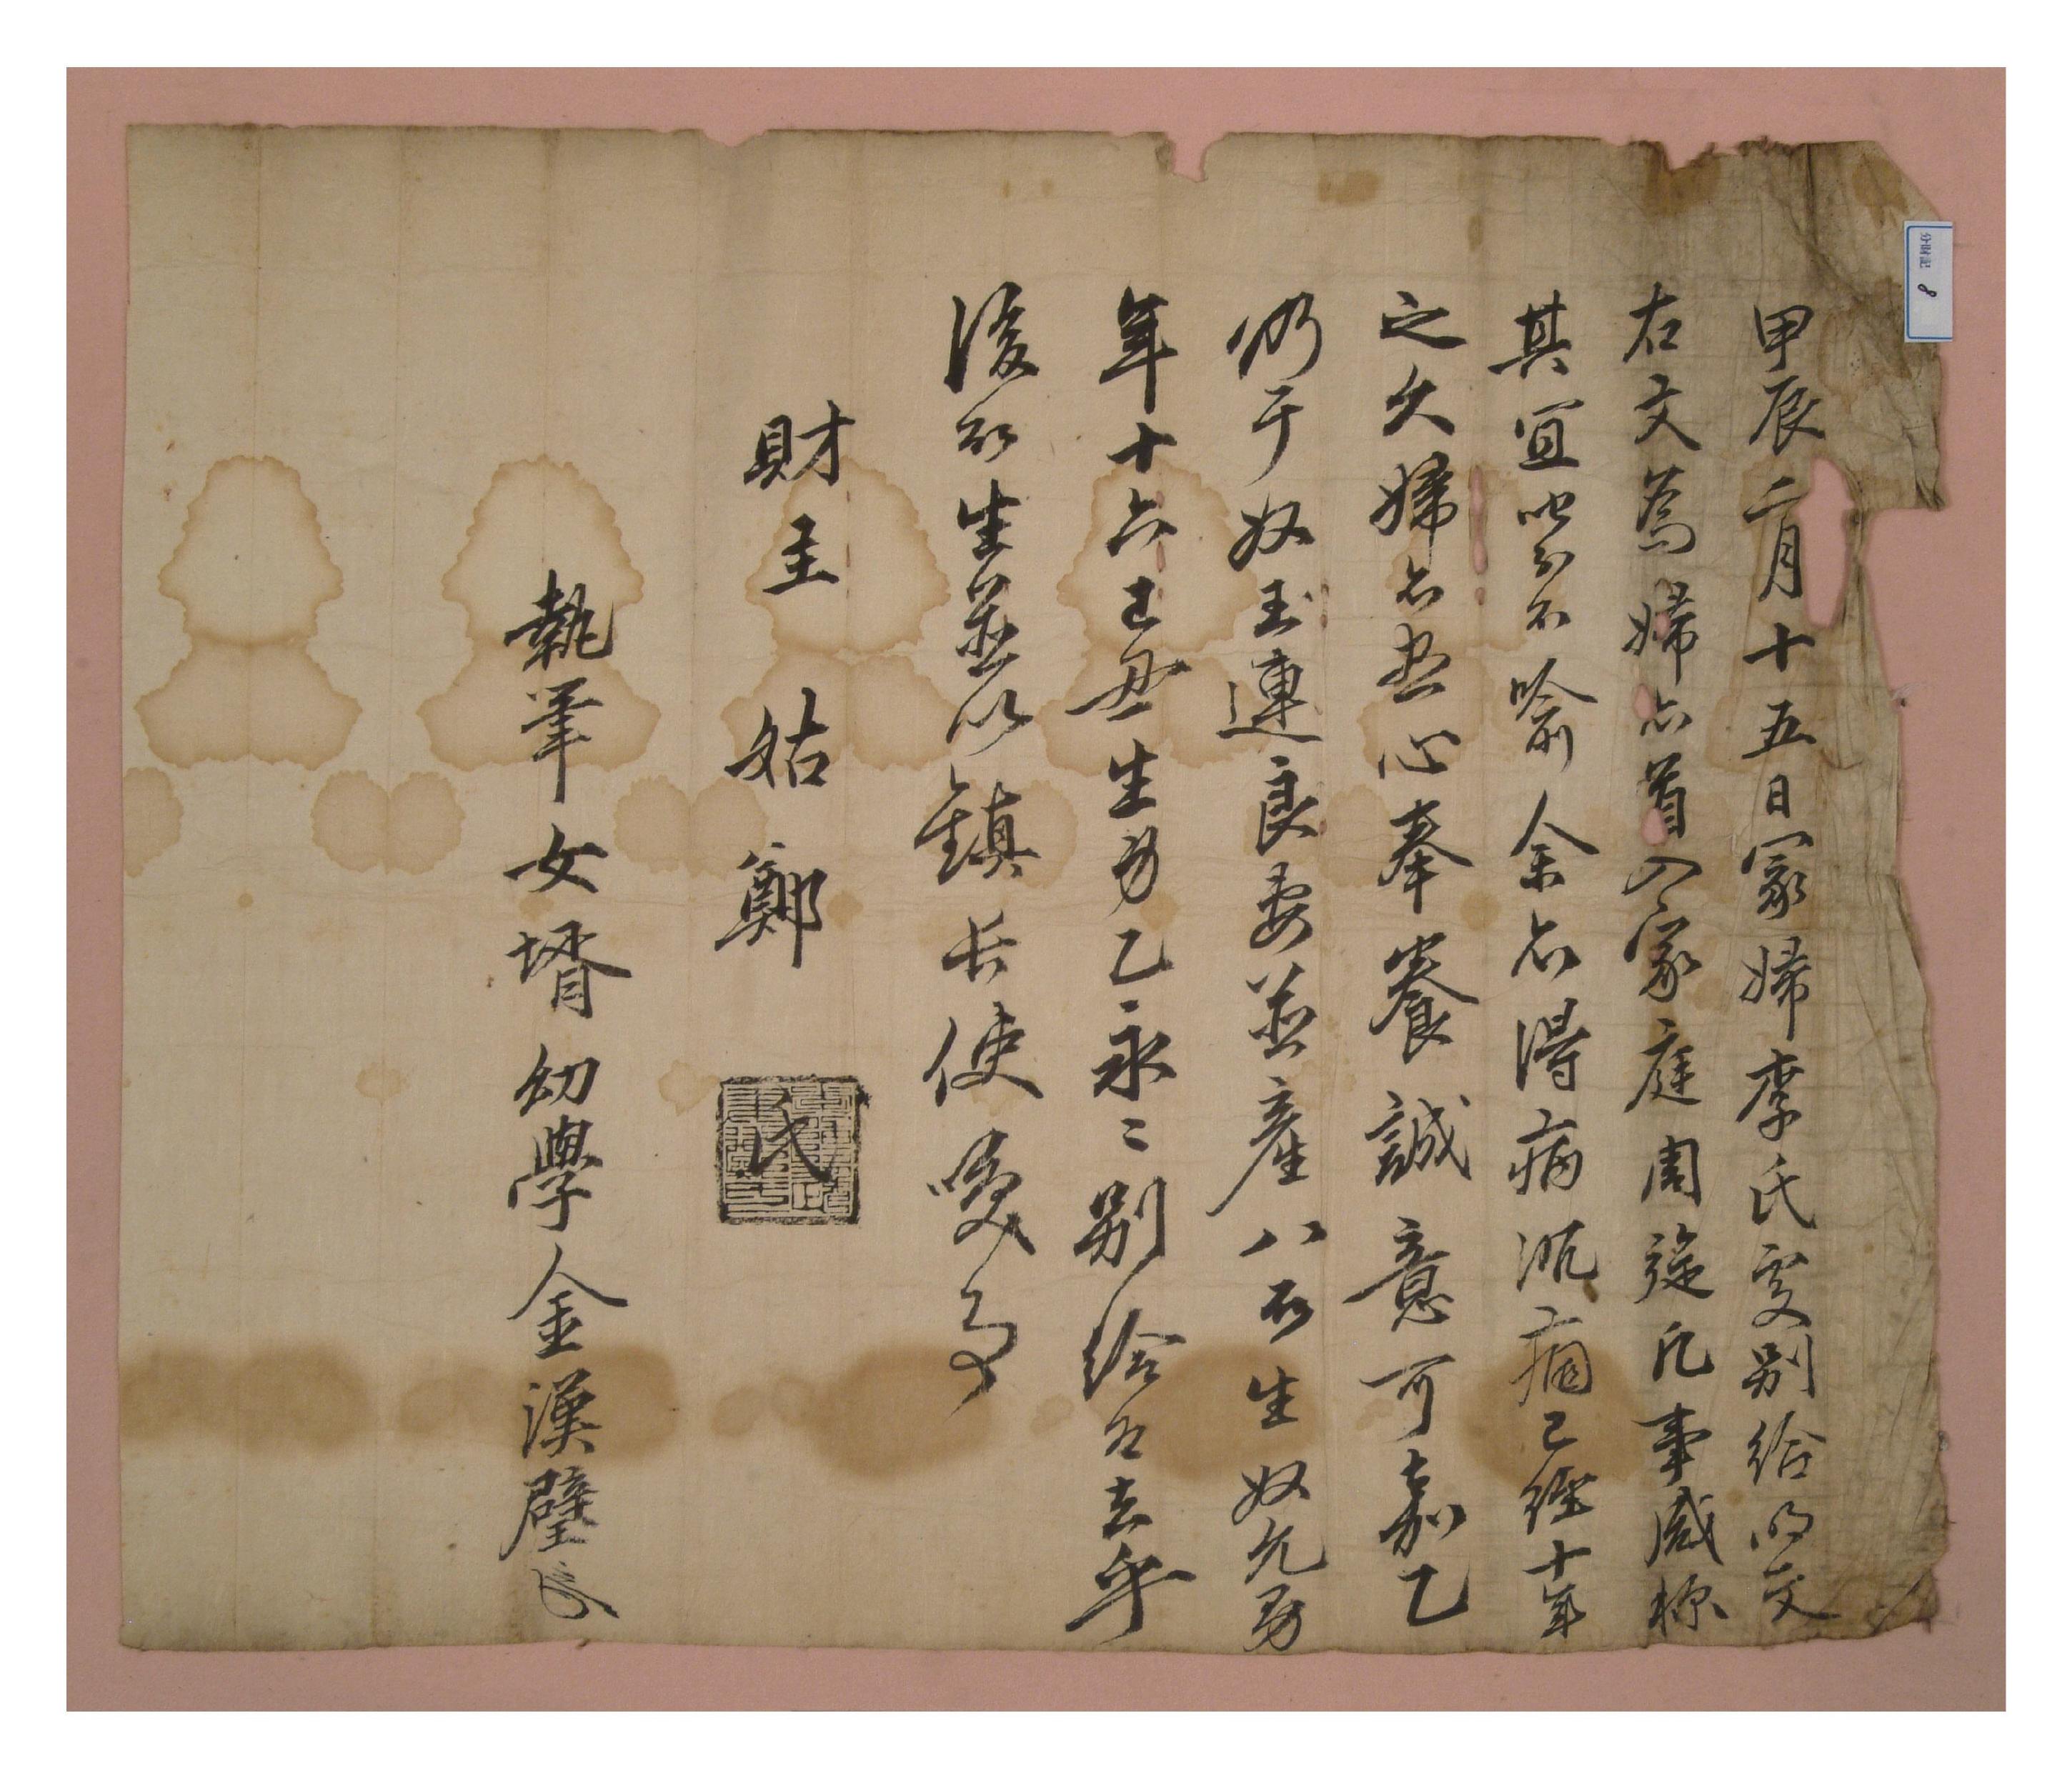 甲辰二月十五日冢婦李氏處別給明文
右文爲婦亦首入冢庭周旋凡事咸稱
其宜叱分不喻余亦得病沉痼已經十年
之久婦亦盡心奉養誠意可嘉乙
仍于奴玉連良妻並産八所生奴允男
年十六己丑生身乙永〻別給爲去乎
後所生並以鎭長使喚事
財主姑鄭氏
執筆女壻幼學金漢璧
分財記 8